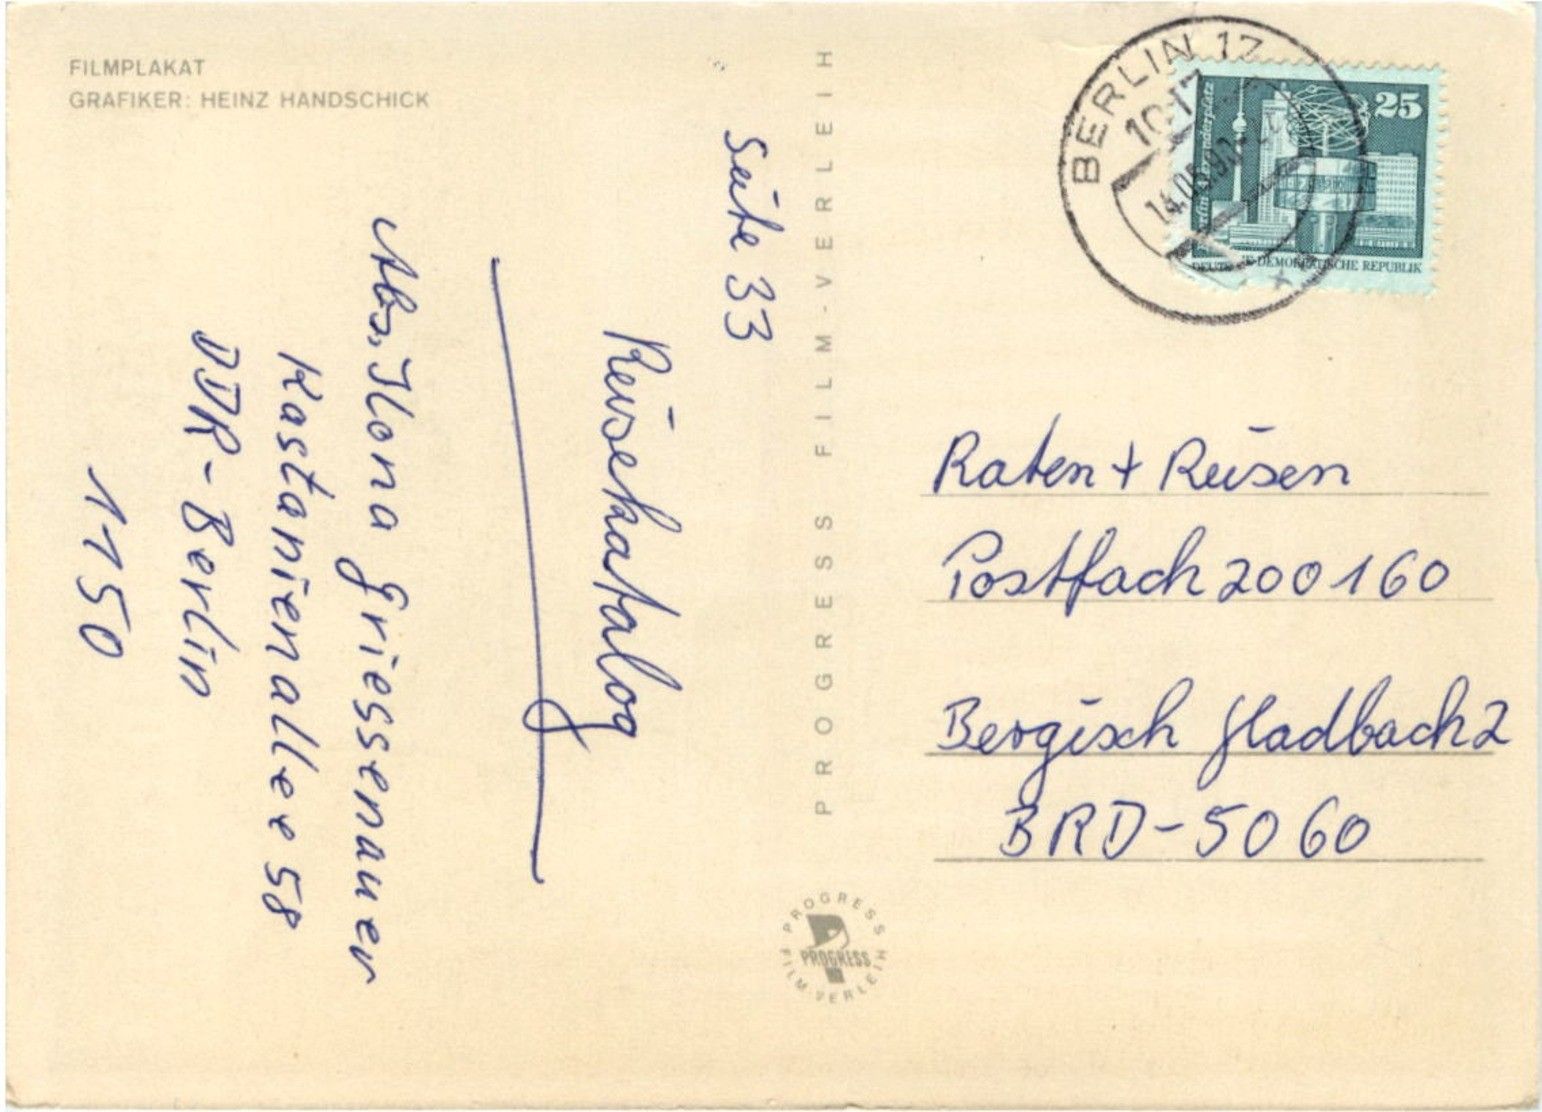 FILMPLAKAT
GRAFIKER: HEINZ HANDSCHICK
Seite 33
Reisekatalog
Abs. Ilona Griessenauer
Kastanienallee 58
DDR-Berlin
1150
PROGRESS FILM-VERLEIH
PROGRESS FILM-VERLEIH
PROGRESS
BERLIN 17
14.05.90
25
DEUTSCHE DEMOKRATISCHE REPUBLIK
Raten + Reisen
Postfach 200160
Bergisch Gladbach 2
BRD-5060